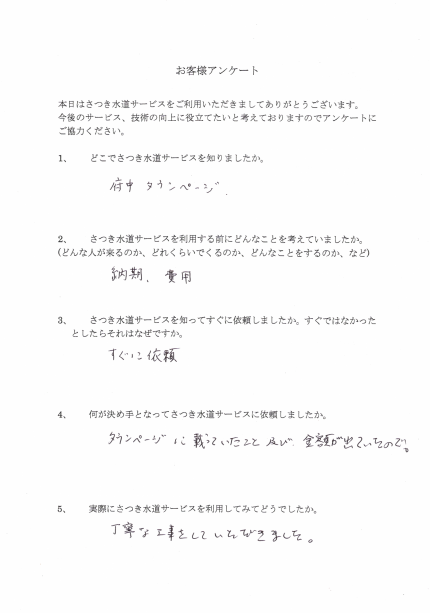 お客様アンケート
本日はさつき水道サービスをご利用いただきましてありがとうございます。
今後のサービス、技術の向上に役立てたいと考えておりますのでアンケートに
ご協力ください。
1、 どこでさつき水道サービスを知りましたか。
府中 タウンページ.
2、 さつき水道サービスを利用する前にどんなことを考えていましたか。
(どんな人が来るのか、どれくらいでくるのか、どんなことをするのか、など)
納期、費用
3、 さつき水道サービスを知ってすぐに依頼しましたか。すぐではなかった
としたらそれはなぜですか。
すぐに依頼
4、 何が決め手となってさつき水道サービスに依頼しましたか。
タウンページに載っていたこと及び金額が出ていたので。
5、 実際にさつき水道サービスを利用してみてどうでしたか。
丁寧な工事をしていただきました。